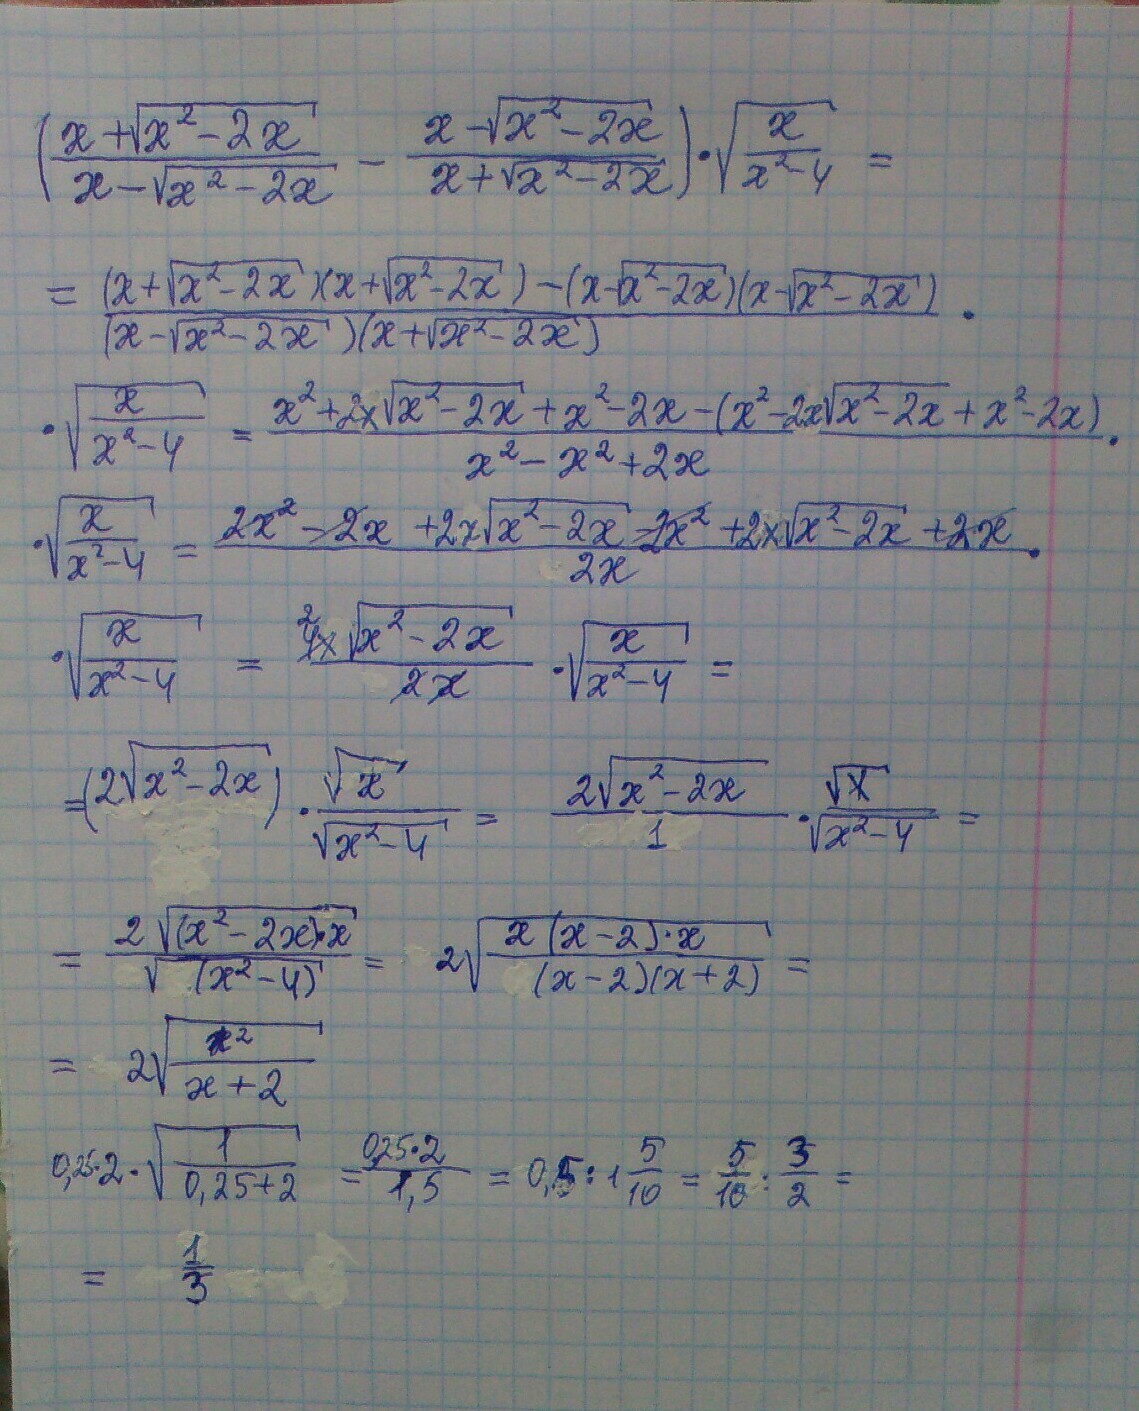 (x+√(x²-2x) / x-√(x²-2x) - x-√(x²-2x) / x+√(x²-2x)) · √(x / x²-4) =
= (x+√(x²-2x))(x+√(x²-2x)) - (x-√(x²-2x))(x-√(x²-2x)) / (x-√(x²-2x))(x+√(x²-2x)) ·
· √(x / x²-4) = x²+2x√(x²-2x)+x²-2x-(x²-2x√(x²-2x)+x²-2x) / x²-x²+2x ·
· √(x / x²-4) = 2x²-2x+2x√(x²-2x)-2x²+2x√(x²-2x)+2x / 2x ·
· √(x / x²-4) = 4x√(x²-2x) / 2x · √(x / x²-4) =
= (2√(x²-2x)) · √x / √(x²-4) = 2√(x²-2x) / 1 · √x / √(x²-4) =
= 2√((x²-2x)·x) / √(x²-4) = 2√(x(x-2)·x / (x-2)(x+2)) =
= 2√(x² / x+2)
0,25·2·√(1 / 0,25+2) = 0,25·2 / 1,5 = 0,5 : 1 5/10 = 5/10 : 3/2 =
= 1/3